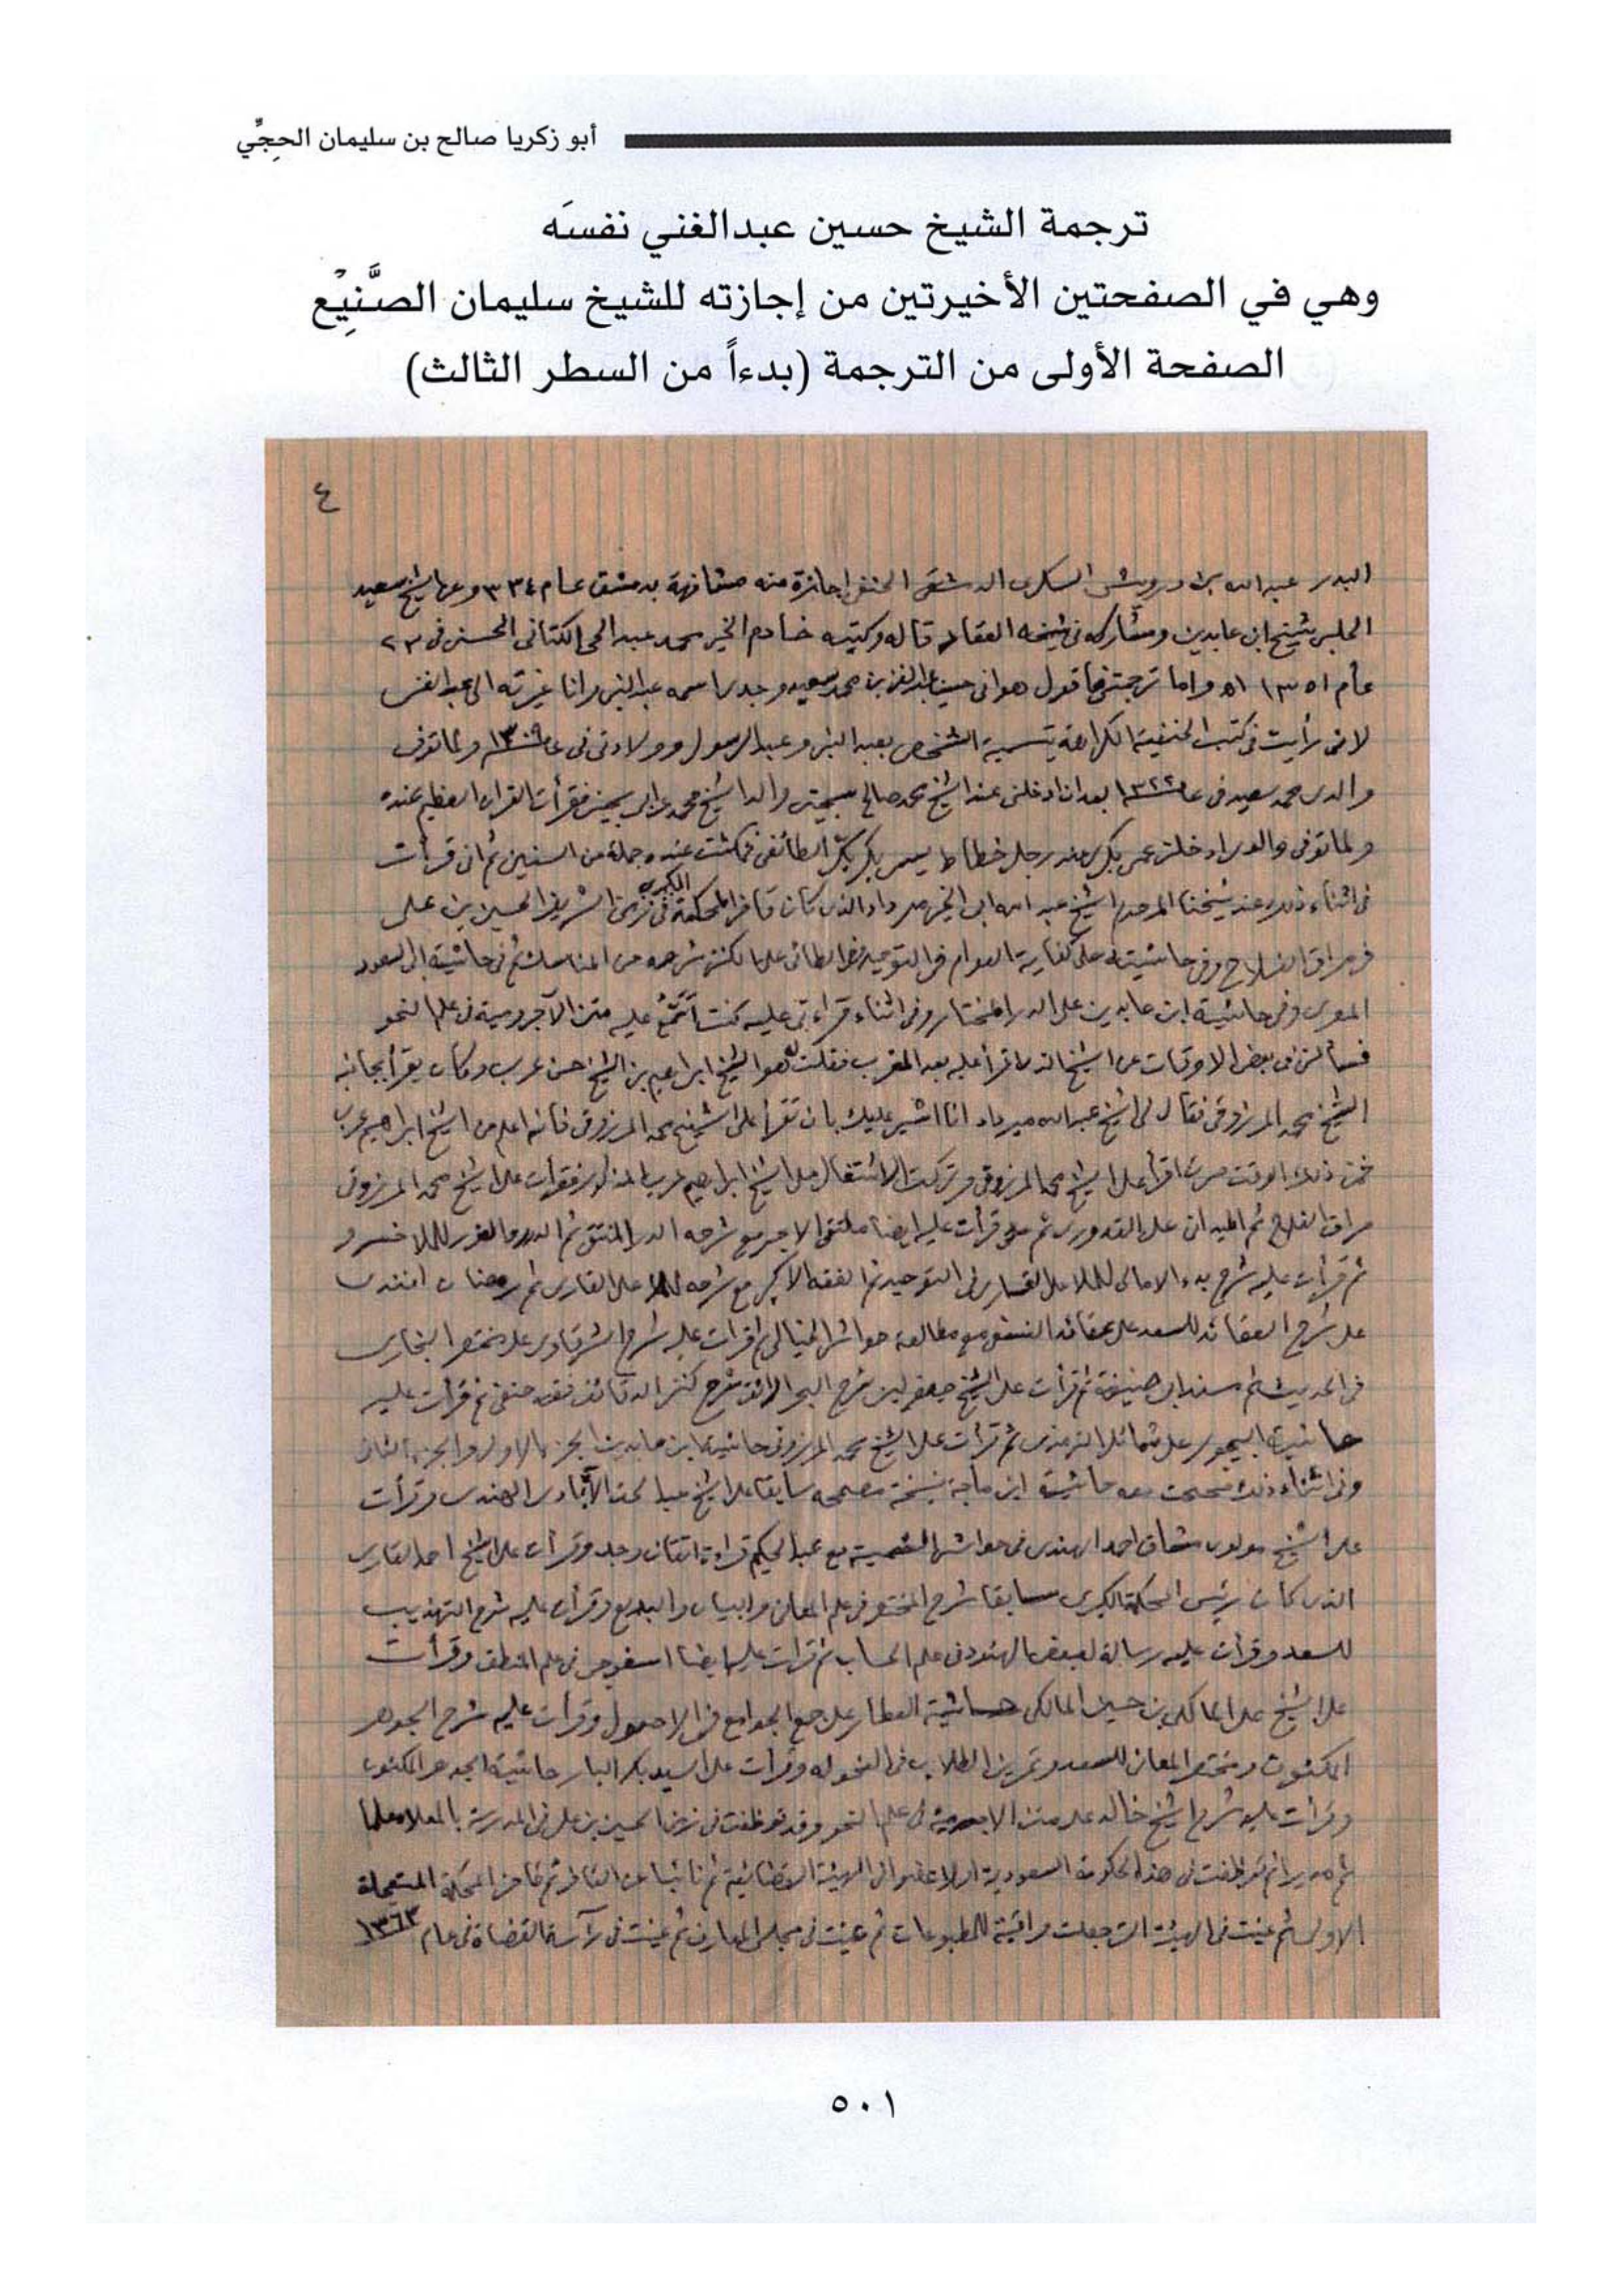 أبو زكريا صالح بن سليمان الحجِّي
ترجمة الشيخ حسين عبدالغني نفسَه
وهي في الصفحتين الأخيرتين من إجازته للشيخ سليمان الصَّنِيْع
الصفحة الأولى من الترجمة (بدءاً من السطر الثالث)
٤
البدر عبد الله بن درويش السكرى الدمشقى الحنفى اجازة منه مشافهة بدمشق عام ٣٣٤ وعن الشيخ سعيد
الحلبى شيخ ابن عابدين ومشاركه فى شيخه العقاد قاله وكتبه خادم الخير محمد عبد الحى الكتانى الحسنى فى ٢٣
عام ١٣٥١ھ واما ترجمتى فاقول هو انى حسين عبد الغنى بن محمد سعيد وجدى اسمه عبد النبى وانا غيرته الى عبد الغنى
لانى رأيت فى كتب الحنفية الكراهة بتسمية الشخص بعبد النبى وعبد الرسول وولادتى فى عام ١٣٠٩ ولما توفى
والدى محمد سعيد فى عام ١٣٢٢ بعد ان ادخلنى عند الشيخ محمد صالح والد الشيخ محمد فقرأت القران العظيم عنده
ولما توفى والدى ادخلنى عمى بكر عند رجل خطاط يسمى بكر الطائفى فمكثت عنده جملة من السنين ثم ان قرأت
فى اثناء ذلك عند شيخنا المرحوم الشيخ عبد الله ابى الخير مرداد الذى كان قاضى المحكمة الكبرى فى زمن الشريف الحسين بن على
فى مراقى الفلاح وفى حاشيته على كفاية العوام فى التوحيد ثم الطائى على الكنز شرحه من المناسك ثم فى حاشية ابى السعود
المصرى وفى حاشية ابن عابدين على الدر المختار وفى اثناء قراءتى عليه كنت عليه متن الآجرومية فى علم النحو
فسألنى فى بعض الاوقات عن الشيخ الذى اقرأ عليه بعد المغرب فقلت له هو الشيخ ابراهيم بن الشيخ حسن عرب وكان يقرأ بجانبه
الشيخ محمد المرزوقى فقال لى الشيخ عبد الله مرداد انا اشير عليك بان تقرأ على الشيخ محمد المرزوقى فانه اعلم من الشيخ ابراهيم عرب
فمن ذلك الوقت صرت اقرأ على الشيخ محمد المرزوقى وتركت الاشتغال على الشيخ ابراهيم عرب المذكور فقرأت على الشيخ محمد المرزوقى
مراقى الفلاح ثم الميدانى على القدورى ثم قرأت عليه ايضا ملتقى الابحر مع شرحه الدر المنتقى ثم الدرر والغرر للملا خسرو
ثم قرأت عليه شرح بدء الامالى للملا على القارى فى التوحيد ثم الفقه الاكبر مع شرحه للملا على القارى ثم رمضان افندى
على شرح العقائد للسعد على عقائد النسفى مع مطالعة حواشى الخيالى ثم قرأت عليه شرح الشرقاوى على مختصر البخارى
فى الحديث ثم مسند ابى حنيفة ثم قرأت على الشيخ جعفر لبنى شرح البحر الرائق شرح كنز الدقائق فقه حنفى ثم قرأت عليه
حاشية البيجورى على شمائل الترمذى ثم قرأت على الشيخ محمد المرزوقى حاشية ابن عابدين الجزء الاول والجزء الثانى
وفى اثناء ذلك صححت معه حاشية ابن ماجة بنسخة مصححه سابقا على الشيخ عبد الحق الهندى وقرأت
على الشيخ مولوى مشتاق احمد الهندى فى حواشى الشمسية مع عبد الحكيم قراءة اتقان وجد وقرأت على الشيخ احمد القارى
الذى كان رئيس المحكمة الكبرى سابقا شرح المختصر فى علم المعانى والبيان والبديع وقرأت عليه شرح التهذيب
للسعد وقرأت عليه رسالة لبعض الهنود فى علم الحساب ثم قرأت عليه ايضا فى علم المنطق وقرأت
على الشيخ على المالكى بن حسين المالكى حاشية العطار على جمع الجوامع فى الاصول وقرأت عليه شرح الجوهر
المكنون ومختصر المعانى للسعد وتمرين الطلاب فى النحو له وقرأت على السيد بكر البار حاشية الجوهر المكنون
وقرأت عليه شرح الشيخ خالد على متن الاجرومية فى علم النحو وقد توظفت فى زمن الحسين بن على فى المدرسة بالمعلاة معلما
ثم مديرا ثم توظفت فى هذه الحكومة السعودية اولا عضوا فى الهيئة القضائية ثم نائبا عن القاضى ثم قاضى المحكمة المستعجلة
الاولى ثم عينت فى الهيئة التى جعلت مراقبة للمطبوعات ثم عينت فى مجلس المعارف ثم عينت فى رآسة القضاة فى عام ١٣٦٣
٥٠١